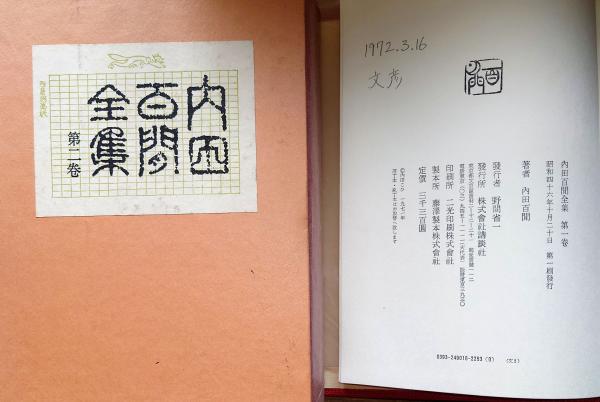 内田
百閒
全集
第二巻
1972.3.16
文彦
百閒
内田百閒全集　第一卷
昭和四十六年十月二十日　第一刷發行
著者　內田百閒
發行者　野間省一
發行所　株式會社講談社
印刷所　二光印刷株式會社
製本所　藤澤製本株式會社
定價　三千三百圓
0393-240018-2253 (0)　(文2)